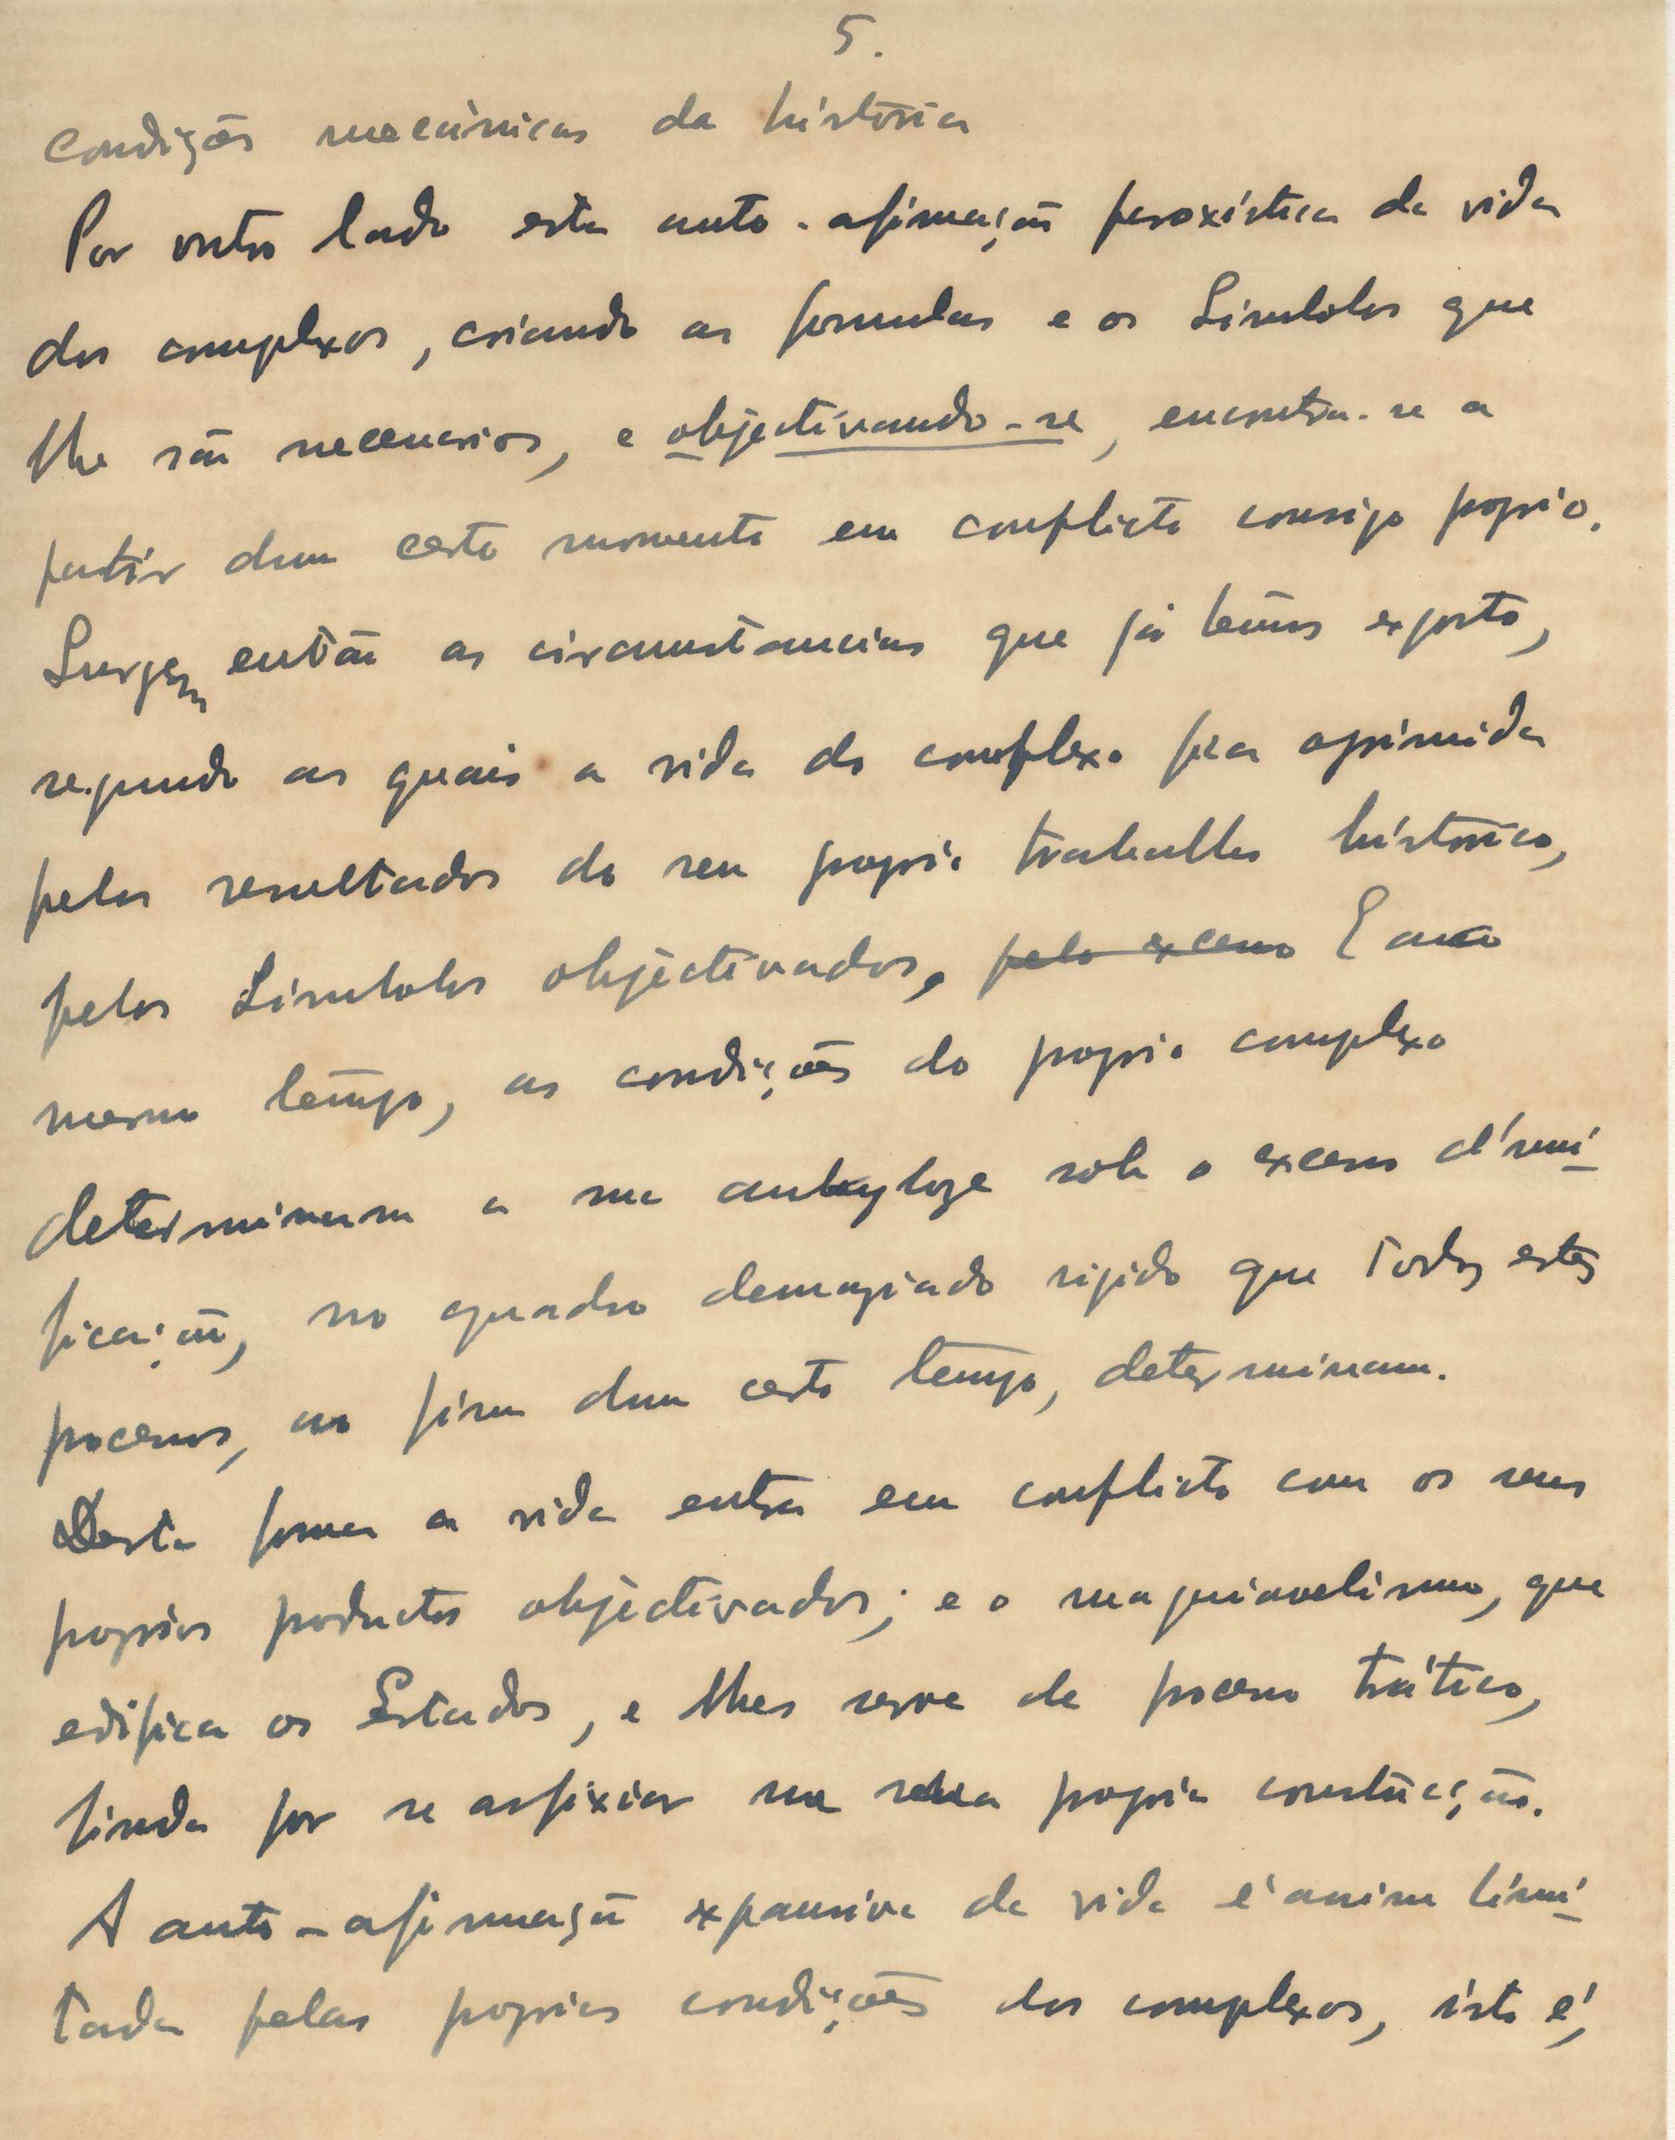 5.
condições mecânicas da história
Por outro lado esta auto-afirmação paroxística da vida
dos complexos, criando as formulas e os Símbolos que
lhe são necessarios, e objectivando-se, encontra-se a
partir dum certo momento em conflicto consigo proprio.
Surgem então as circumstancias que já temos exposto,
segundo as quais a vida do complexo fica oprimida
pelos resultados do seu proprio trabalho histórico,
pelos Símbolos objectivados, pelo excesso E ao
mesmo tempo, as condições do proprio complexo
determinam a sua ankyloze sob o excesso d'uni-
ficação, no quadro demaziado rigido que todos estes
processos, ao fim dum certo tempo, determinam.
Desta forma a vida entra em conflicto com os seus
proprios productos objectivados; e o maquiavelismo, que
edifica os Estados, e lhes serve de processo tático,
finda por se asfixiar na sua propria construção.
A auto-afirmação expansiva da vida é assim limi-
tada pelas proprias condições dos complexos, isto é,